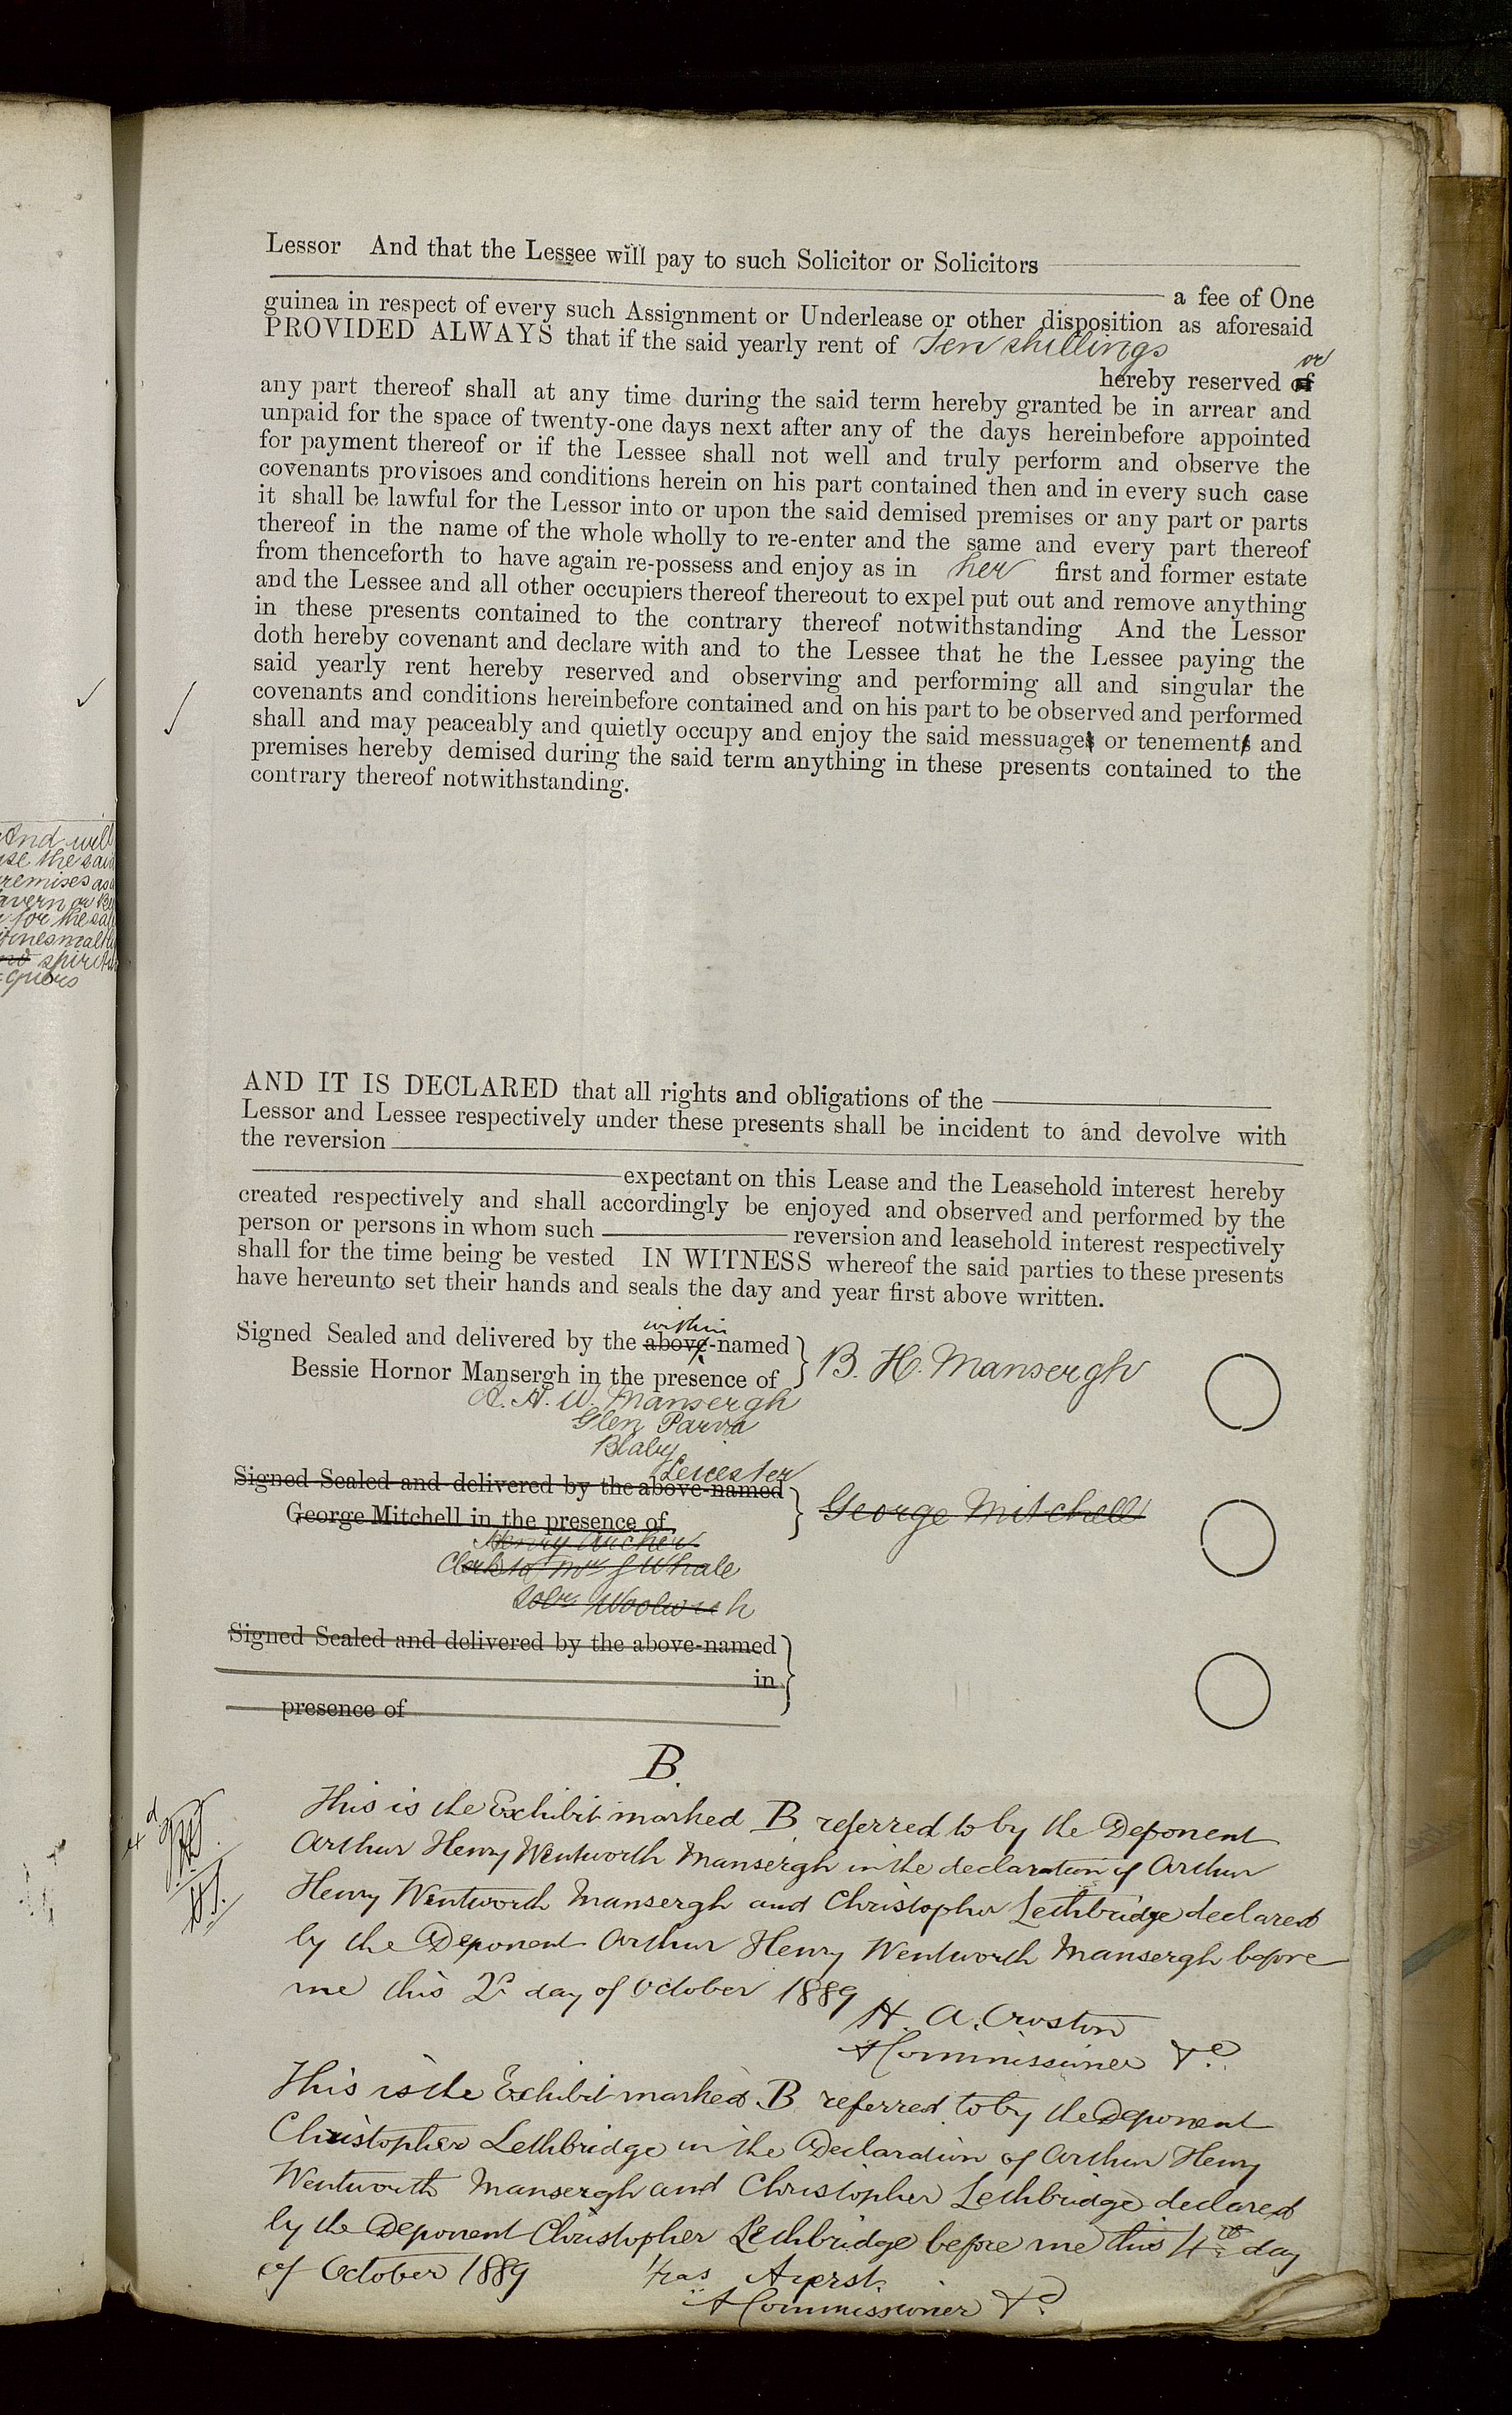 Lessor And that the Lessee will pay to such Solicitor or Solicitors
a fee of One
guinea in respect of every such Assignment or Underlease or other disposition as aforesaid
PROVIDED ALWAYS that if the said yearly rent of Ten shillings
or
hereby reserved of
any part thereof shall at any time during the said term hereby granted be in arrear and
unpaid for the space of twenty-one days next after any of the days hereinbefore appointed
for payment thereof or if the Lessee shall not well and truly perform and observe the
covenants provisoes and conditions herein on his part contained then and in every such case
it shall be lawful for the Lessor into or upon the said demised premises or any part or parts
thereof in the name of the whole wholly to re-enter and the same and every part thereof
from thenceforth to have again re-possess and enjoy as in her first and former estate
and the Lessee and all other occupiers thereof thereout to expel put out and remove anything
in these presents contained to the contrary thereof notwithstanding And the Lessor
doth hereby covenant and declare with and to the Lessee that he the Lessee paying the
said yearly rent hereby reserved and observing and performing all and singular the
covenants and conditions hereinbefore contained and on his part to be observed and performed
shall and may peaceably and quietly occupy and enjoy the said messuages or tenements and
premises hereby demised during the said term anything in these presents contained to the
contrary thereof notwithstanding.
And will
use the said
premises as
tavern or
for the
wines malt
spirit
AND IT IS DECLARED that all rights and obligations of the
Lessor and Lessee respectively under these presents shall be incident to and devolve with
the reversion
expectant on this Lease and the Leasehold interest hereby
created respectively and shall accordingly be enjoyed and observed and performed by the
person or persons in whom such reversion and leasehold interest respectively
shall for the time being be vested IN WITNESS whereof the said parties to these presents
have hereunto set their hands and seals the day and year first above written.
within
Signed Sealed and delivered by the above-named
Bessie Hornor Mansergh in the presence of
B. H. Mansergh
A. H. W. Mansergh
Glen Parva
Blaby
Leicester
Signed Sealed and delivered by the above-named
George Mitchell in the presence of
George Mitchell
Henry Archer
Clerk to Mr J Whale
Solr Woolwich
Signed Sealed and delivered by the above-named
in
presence of
B.
This is the Exhibit marked B referred to by the Deponent
Arthur Henry Wentworth Mansergh in the declaration of Arthur
Henry Wentworth Mansergh and Christopher Lethbridge declared
by the Deponent Arthur Henry Wentworth Mansergh before
me this 2d day of October 1889
H. A. Croston
A Commissioner &c.
This is the Exhibit marked B referred to by the Deponent
Christopher Lethbridge in the Declaration of Arthur Henry
Wentworth Mansergh and Christopher Lethbridge declared
by the Deponent Christopher Lethbridge before me this 4th day
of October 1889
Ayerst
A Commissioner &c.